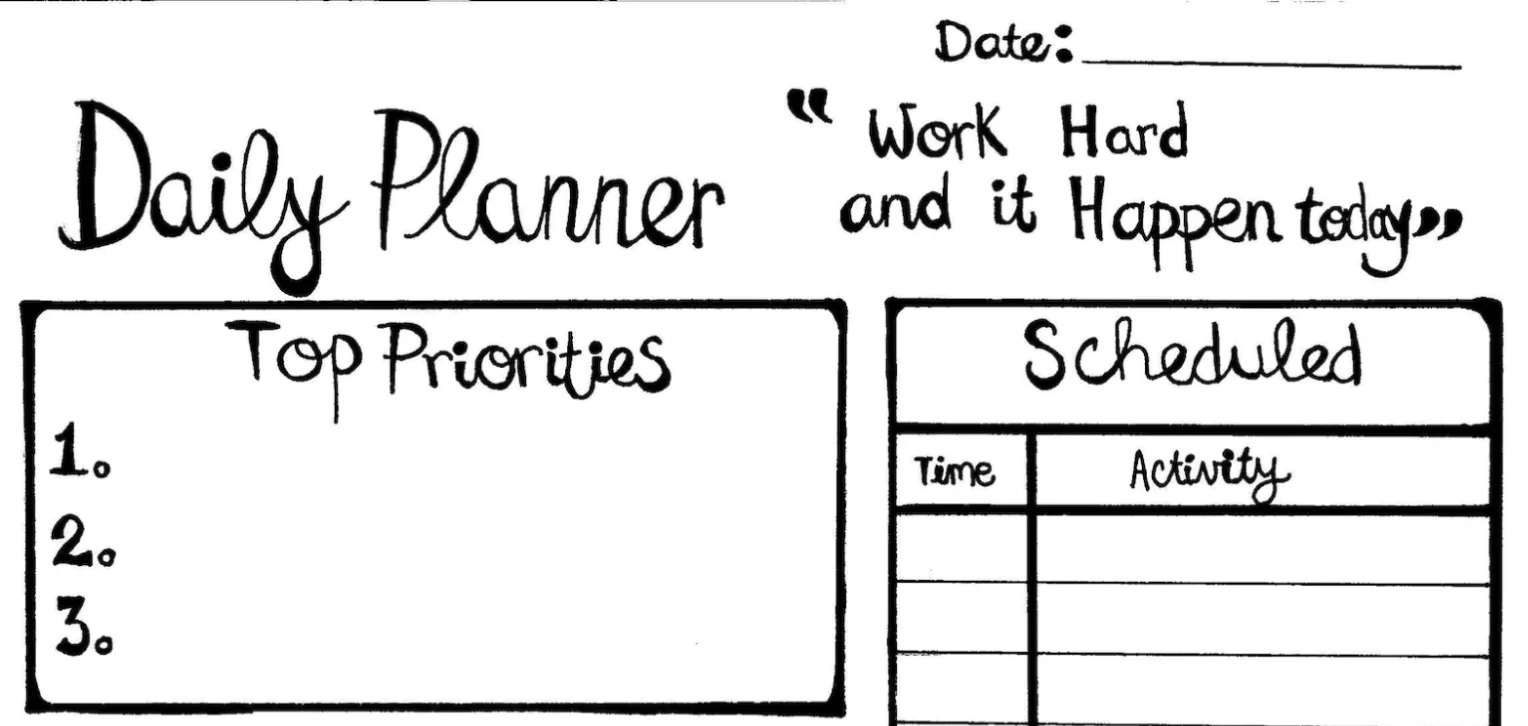 Date:
Daily Planner
“Work Hard
and it Happen today”
Top Priorities
1.
2.
3.
Scheduled
Time Activity